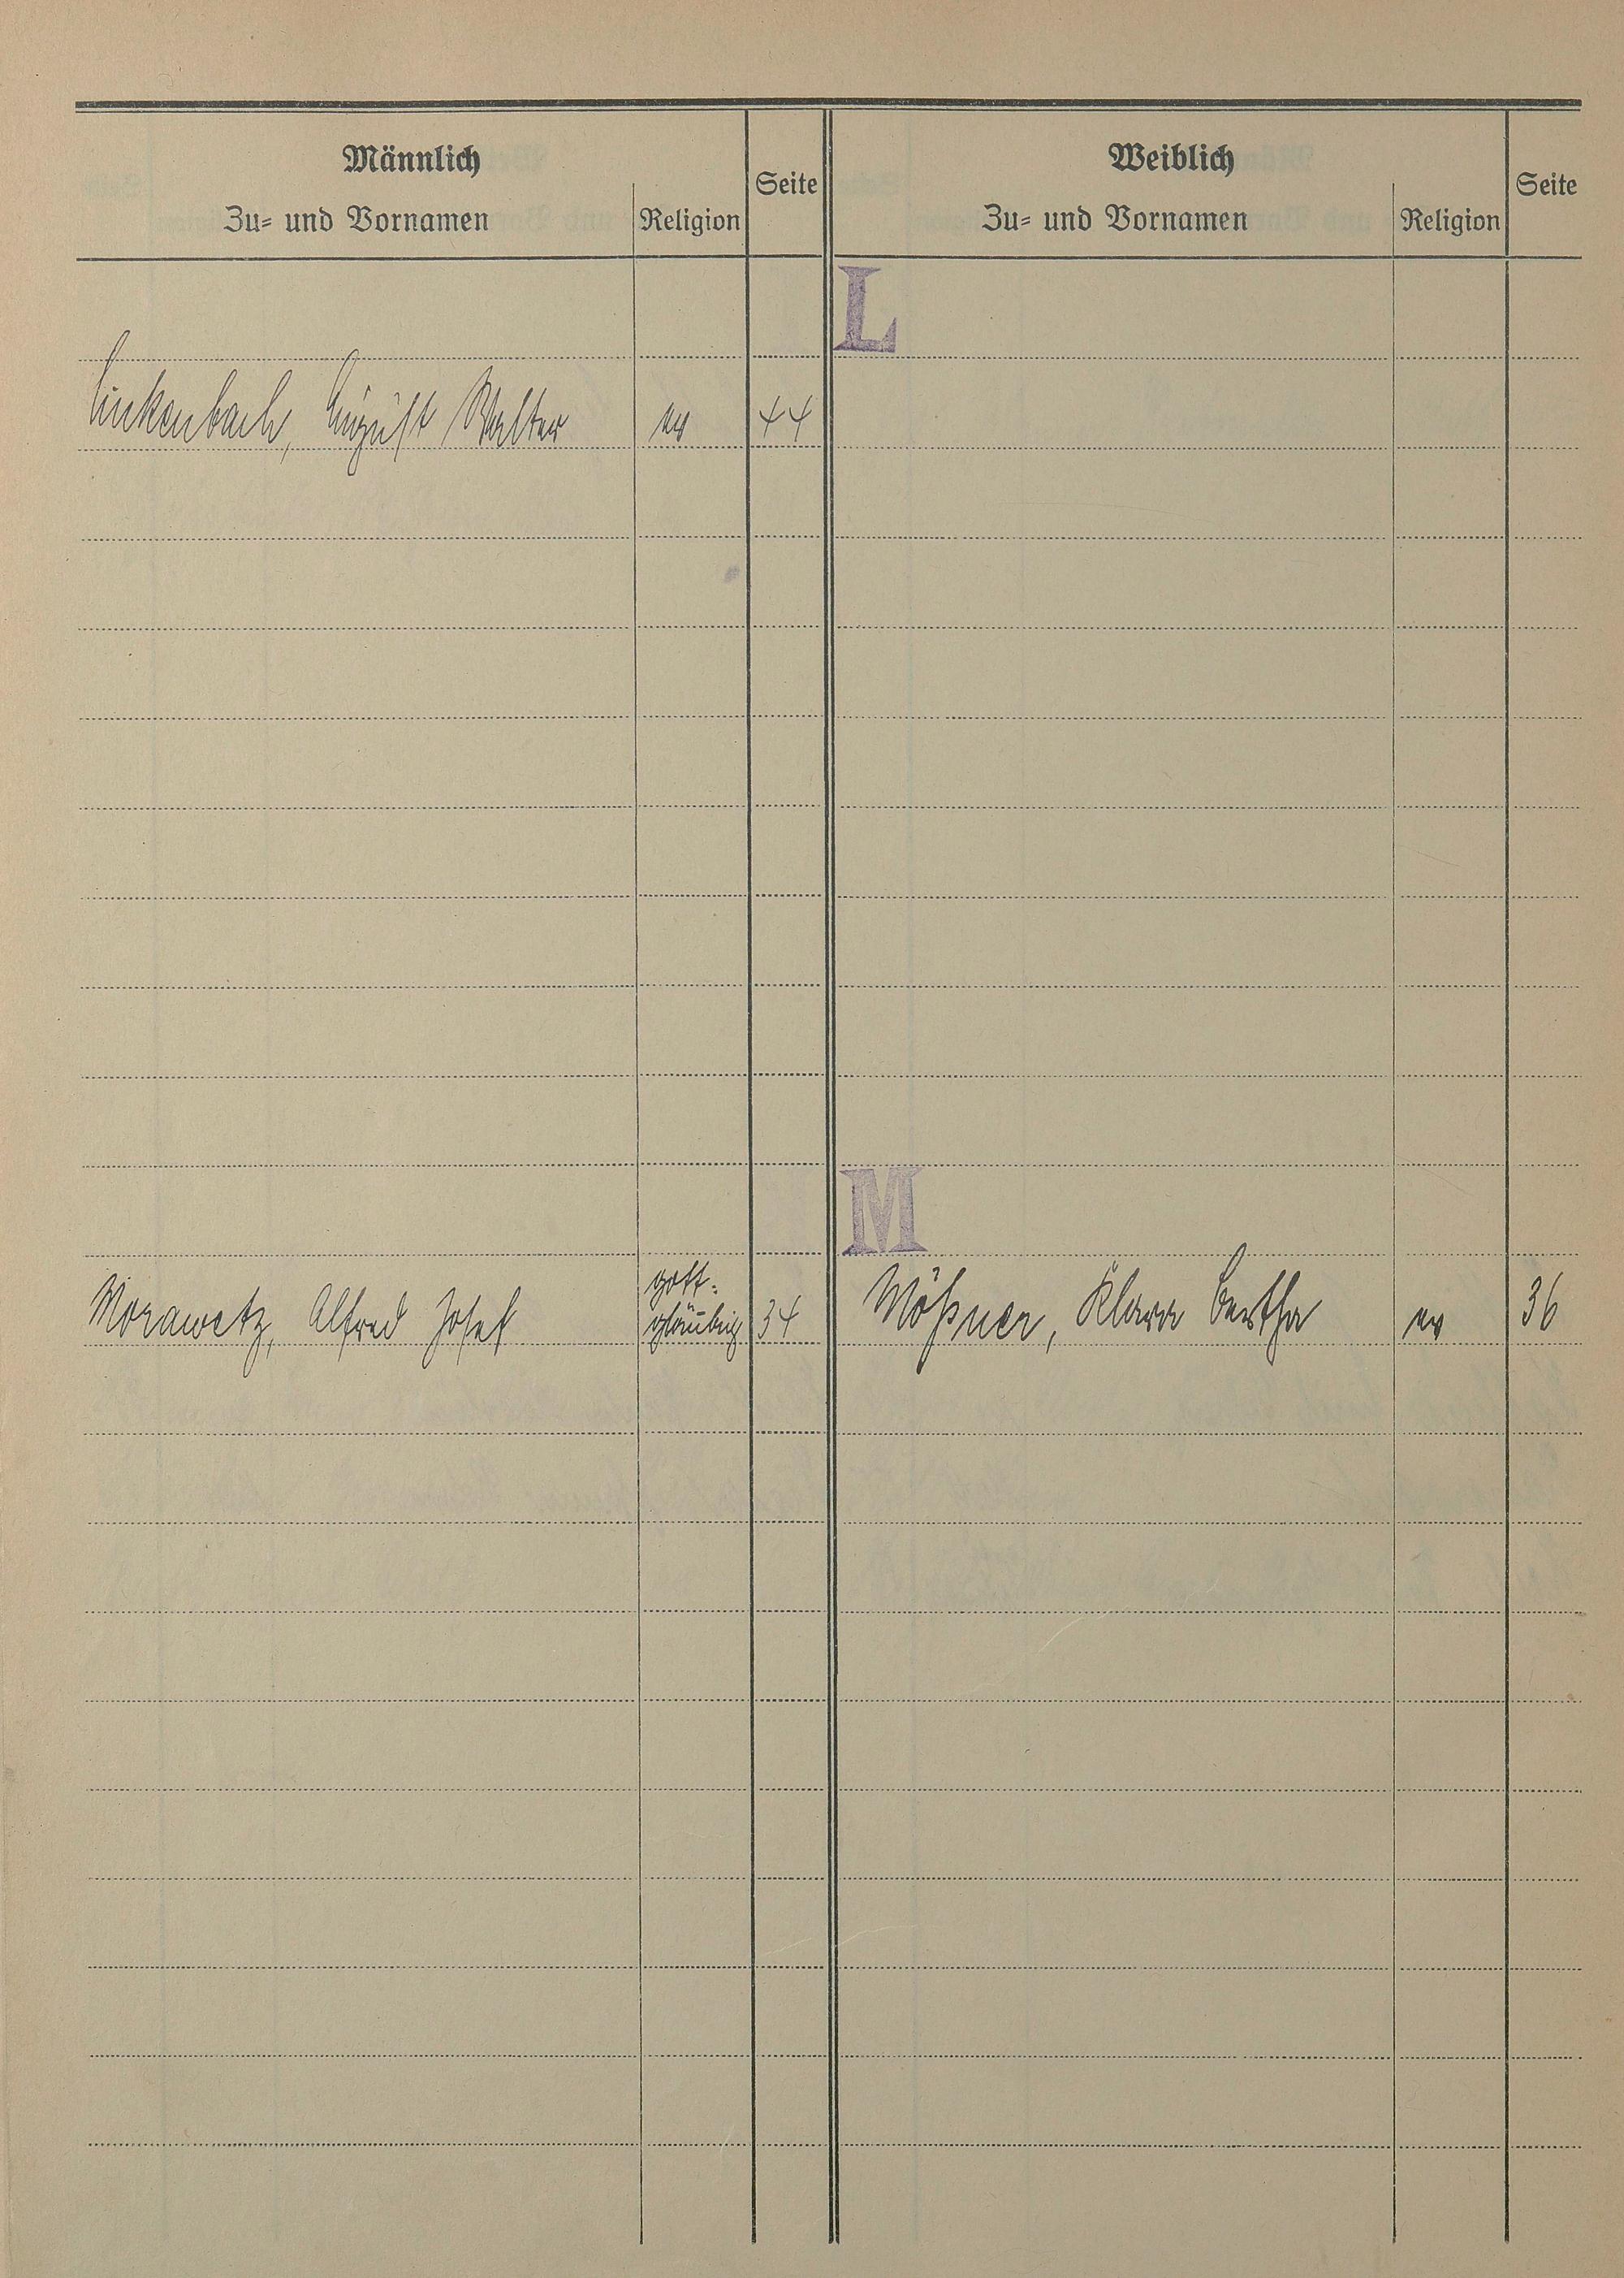 Männlich
Zu- und Vornamen
Religion
Seite
Weiblich
Zu- und Vornamen
Religion
Seite
L
Linkenbach, August Walter ev 44
M
gott-
Morawetz, Alfred Josef gläubig 34
Mößner, Klara Bertha ev 36